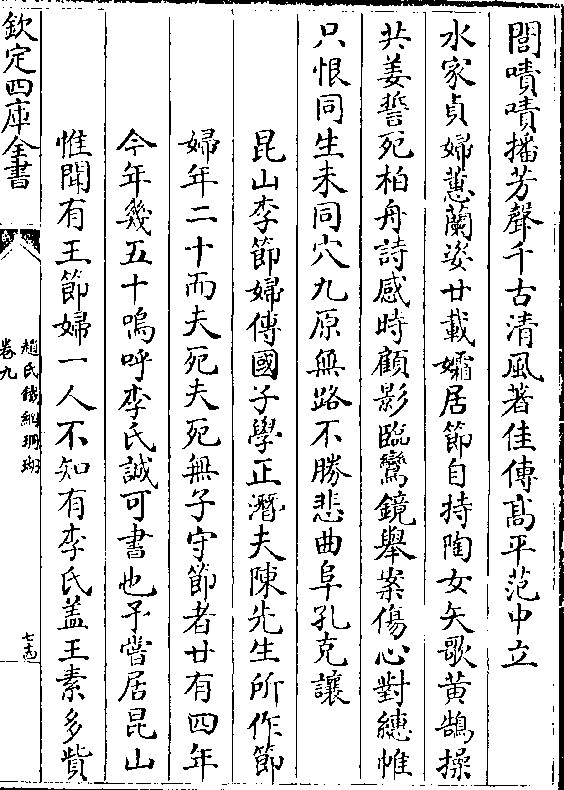 閭嘖嘖播芳聲千古清風著佳傳高平范中立
水家貞婦蕙蘭姿廿載孀居節自持陶女矢歌黄鵠操
共姜誓死柏舟詩感時顧影臨鸞鏡舉案傷心對繐帷
只恨同生未同穴九原無路不勝悲曲阜孔克讓
昆山李節婦傳國子學正潛夫陳先生所作節
婦年二十而夫死夫死無子守節者廿有四年
今年幾五十嗚呼李氏誠可書也予嘗居昆山
惟聞有王節婦一人不知有李氏盖王素多貲
欽定四庫全書
趙氏鐵網珊瑚
卷九